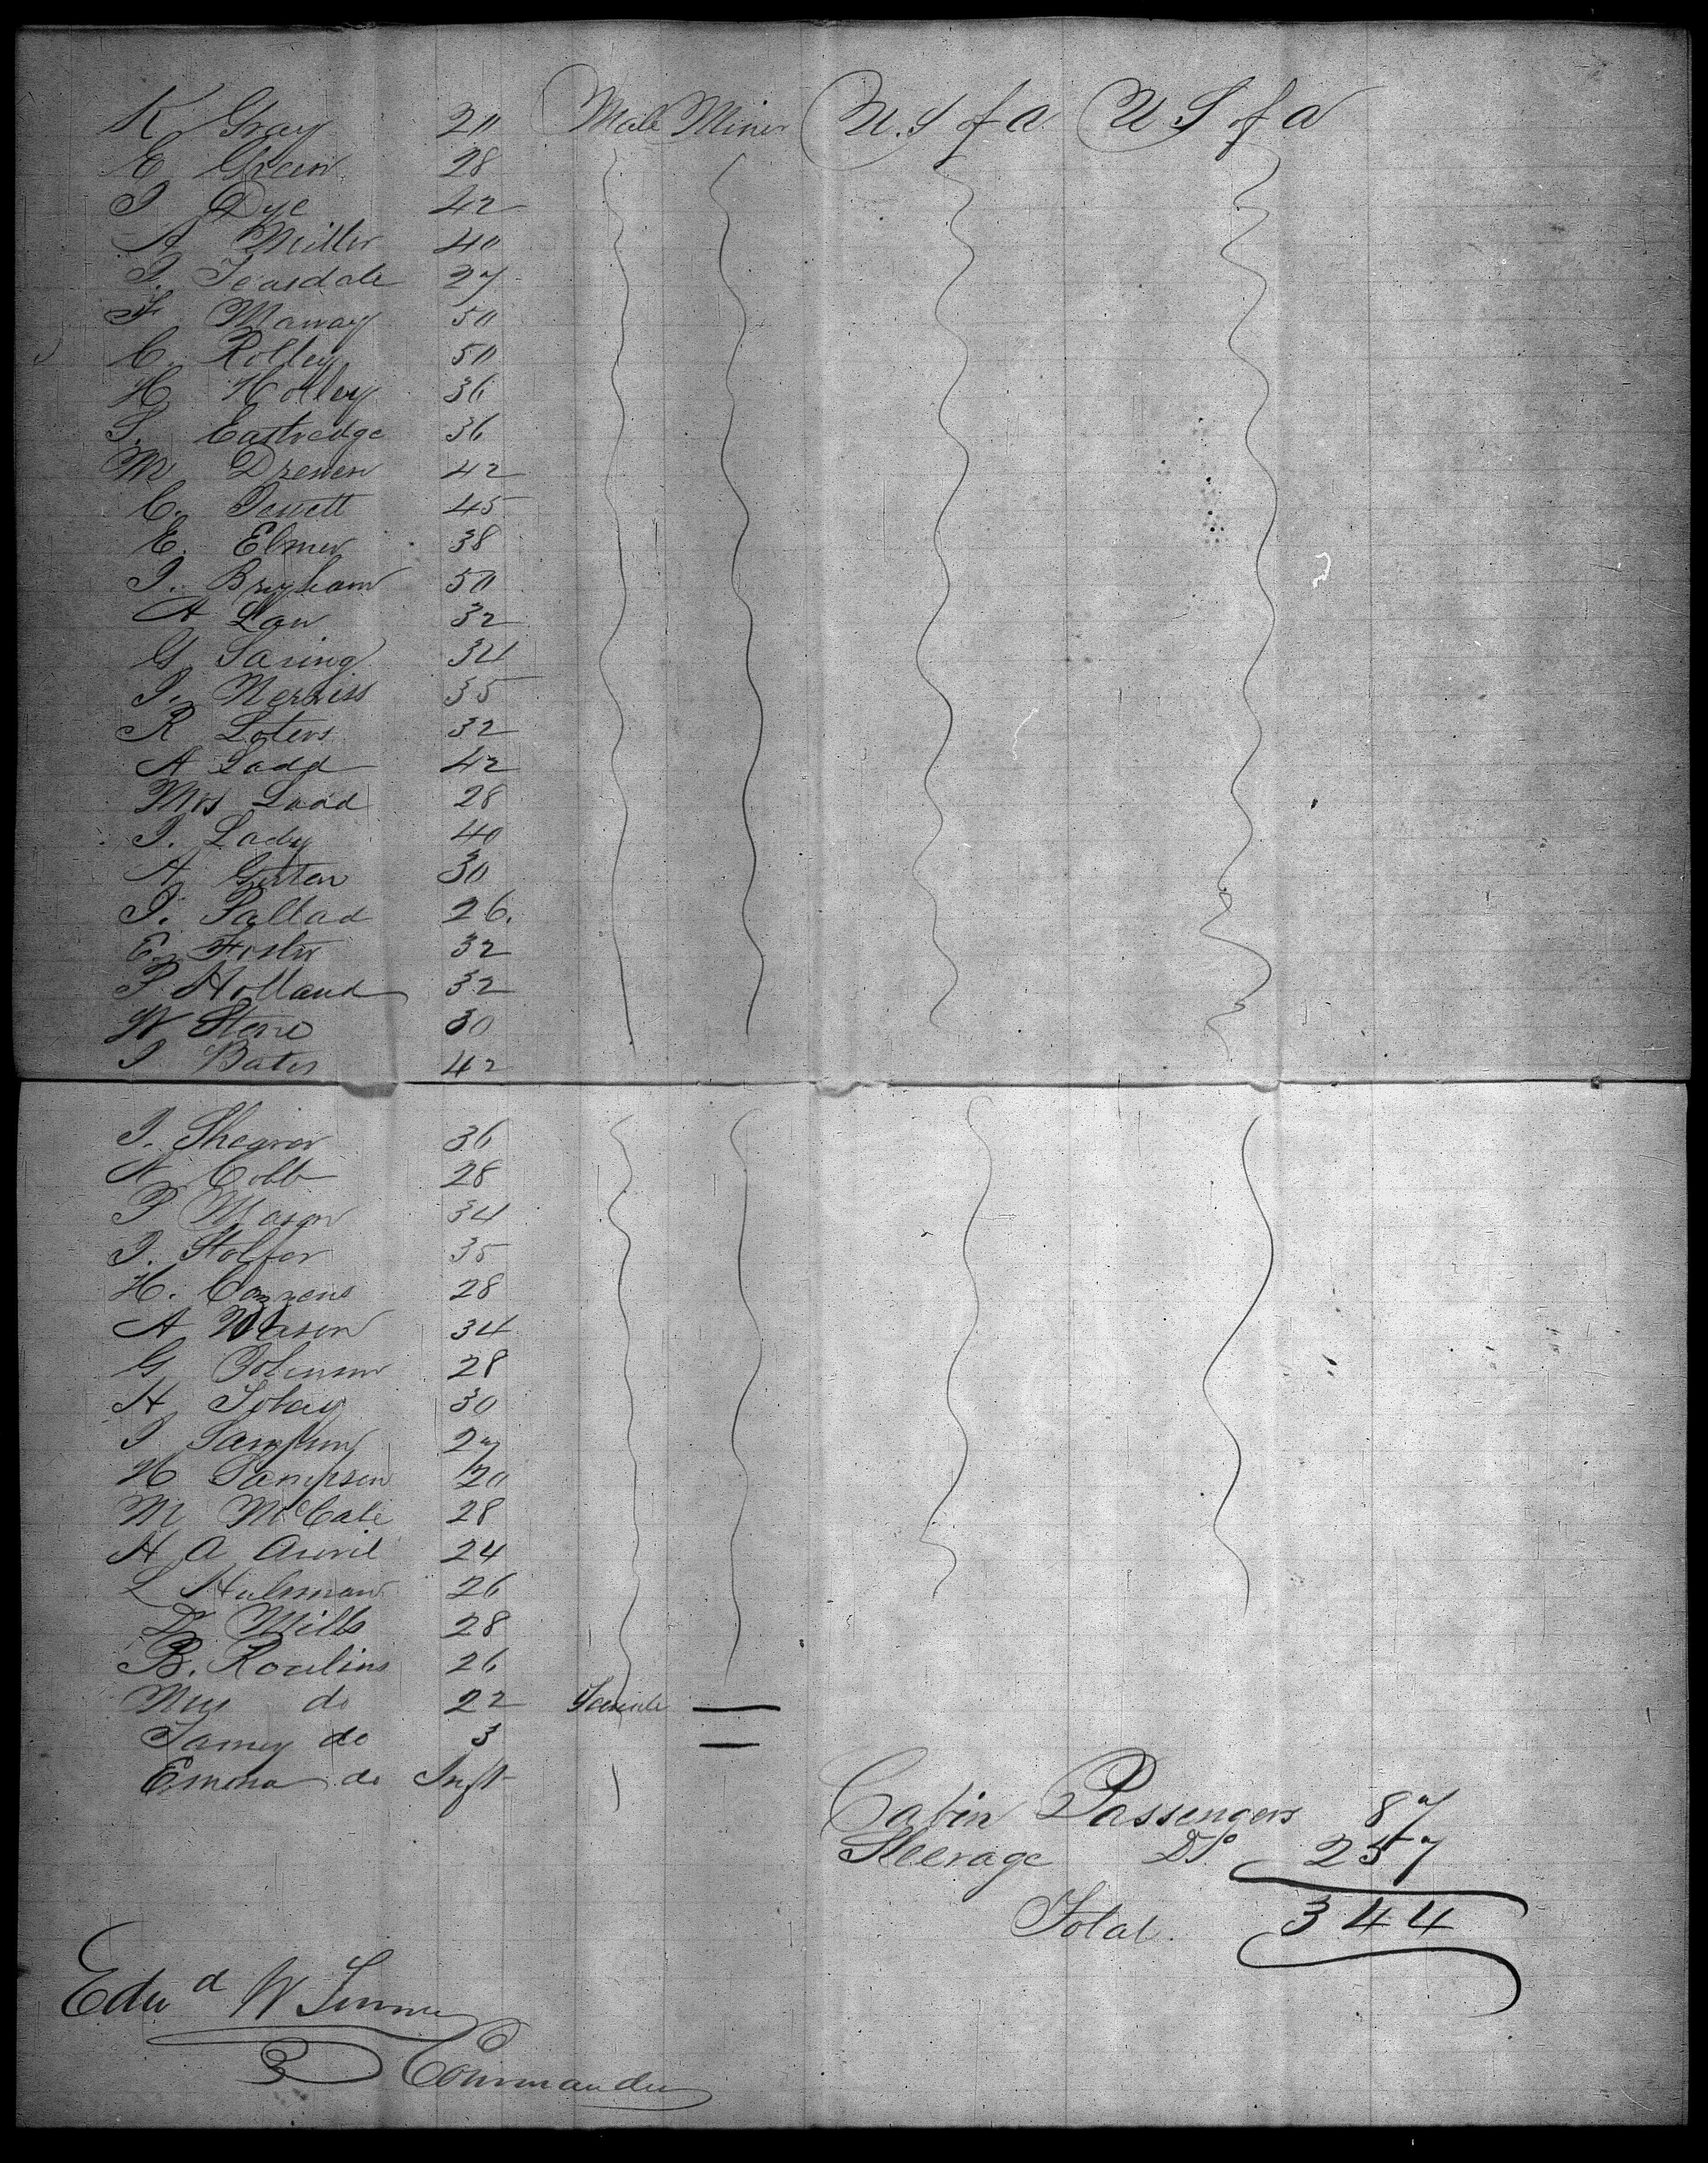 K Gray 20 Male Miner U.S of a U S of a
E Green 28
J Dye 42
A Miller 40
J. Teasdale 27
F Maway 50
C. Rolley 50
H Holley 36
S. Eastredge 36
M Drewen 42
C. Jewett 45
E. Elmer 38
J. Brigham 50
A Law 32
G Saring 34
J. Nerriss 35
R Loters 32
A Ladd 42
Mrs Ladd 28
J. Lady 40
A Girten 30
J. Sallad 26.
E. Foster 32
P Holland 32
W Stone 30
J Bates 42
J. Shearer 36
N Cobb 28
P Mason 34
J. Stolfer 35
H. Cozzens 28
A Mason 34
G Johnson 28
H Tobey 30
J Sampson 27
H Sampson 20
M McCabe 28
H A Averil 24
L Hulsman 26
D Mills 28
B. Rawlins 26
Mrs do 22 Female —
Jamey do 3 —
Emma do Inft
Cabin Passengers 87
Steerage Do. 257
Total. 344
Edwd W
Commander